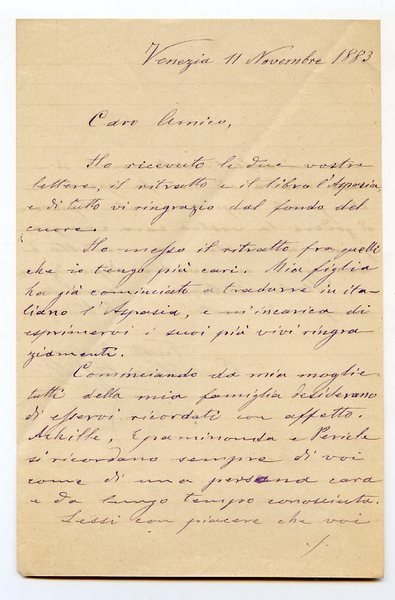 Venezia 11 Novembre 1883
Caro Amico,
Ho ricevuto le due vostre
lettere, il ritratto e il libro l'Aspasia,
e di tutto vi ringrazio dal fondo del
cuore.
Ho messo il ritratto fra quelli
che io tengo più cari. Mia figlia
ha già cominciato a tradurre in ita-
liano l'Aspasia, e m'incarica di
esprimervi i suoi più vivi ringra
ziamenti.
Cominciando da mia moglie
tutti della mia famiglia desiderano
di esservi ricordati con affetto.
Achille, Epaminonda e Pericle
si ricordano sempre di voi
come di una persona cara
e da lungo tempo conosciuta.
Lessi con piacere che voi
./.